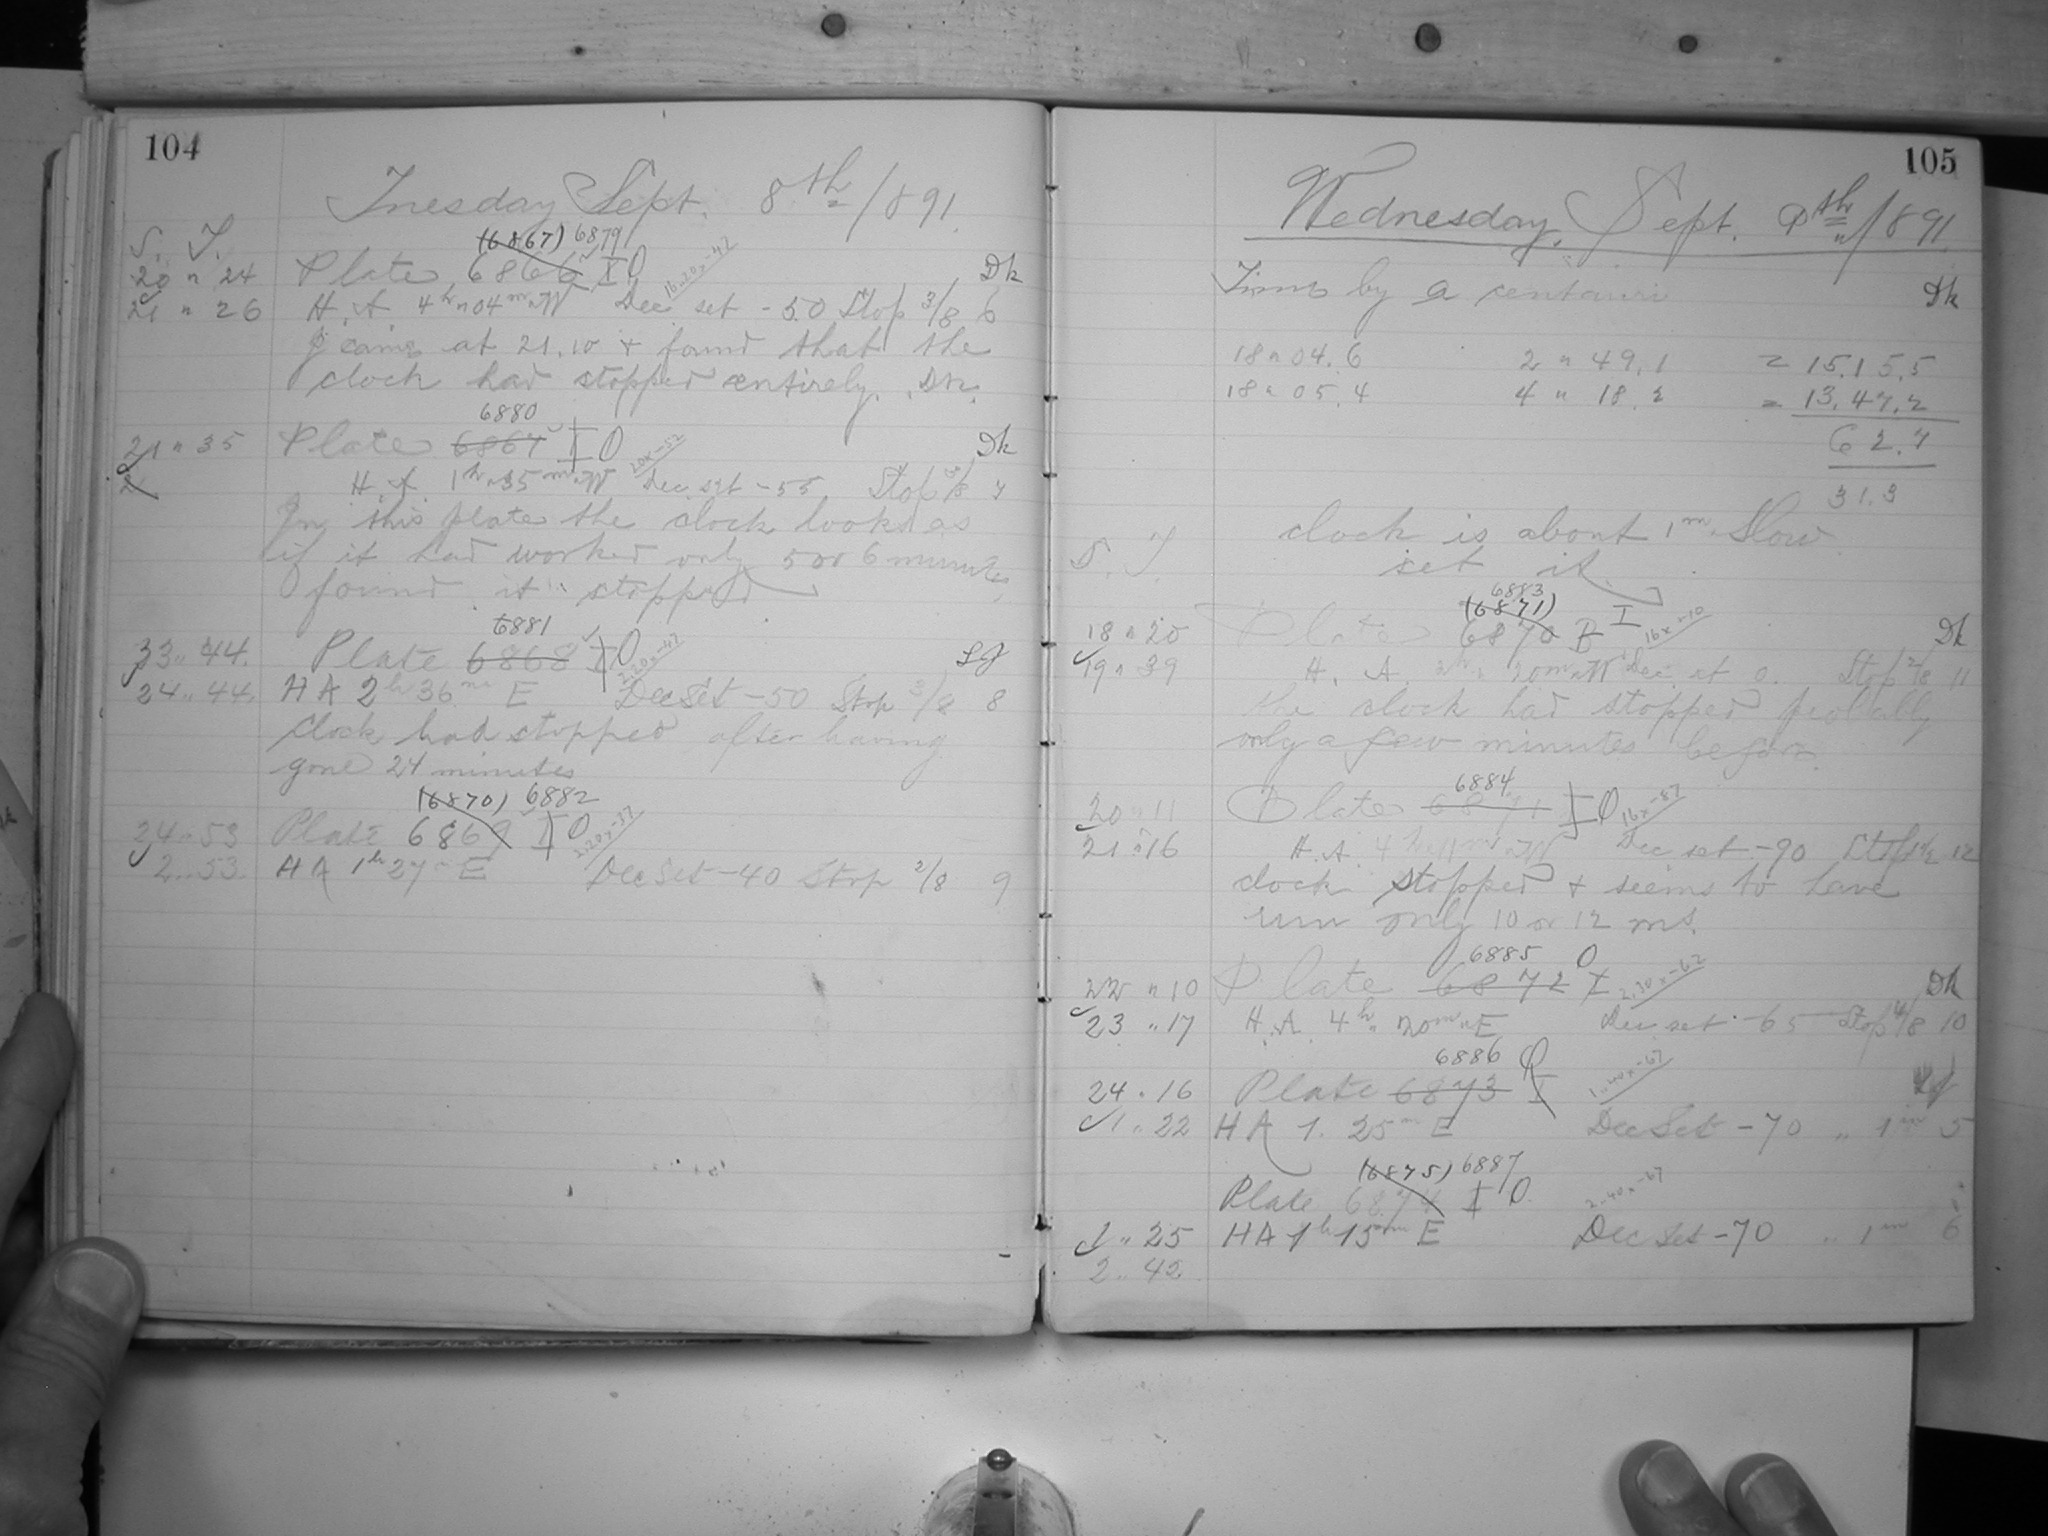 104
Tuesday Sept. 8th 1891.
S. T.
(6867) 6879
20 " 24 Plate 6866 I 0 16.20x-47 Dk
21 " 26 H. A. 4h " 04m " W Dec set - 50 Stop 3/8 6
I came at 21.10 + found that the
clock had stopped entirely. Dk.
6880
21 " 35 Plate 6867 I 0 20x-52 Dk
H. A. 1h " 35m " W Dec. set - 55 Stop 3/8 7
In this plate the clock looks as
if it had worked only 5 or 6 minutes
found it stopped
6881
23 " 44. Plate 6868 I 0 2.20x-47 LJ
24 " 44. HA 2h 36m E Dec Set - 50 Stop 3/8 8
Clock had stopped after having
gone 24 minutes
(6870) 6882
24 " 53 Plate 6869 I 0 2.20x-37
2 " 53. HA 1h 27m E Dec Set - 40 Stop 2/8 9
105
Wednesday. Sept. 9th 1891
Time by a centauri Dk
18 " 04.6 2 " 49.1 = 15.15.5
18 " 05.4 4 " 18.2 = 13.47.2
62.7
31.3
clock is about 1m. Slow
S. T. set it.
6883
(6871)
18 " 20 Plate 6870 B I 16x+10 Dk
19 " 39 H. A. 2h " 20m " W Dec. at 0. Stop 2/8 11
the clock had stopped probably
only a few minutes before.
6884
20 " 11 Plate 6871 I 0 16x-87
21 " 16 H. A. 4h W Dec set - 90 Stop 12
clock stopped + seems to have
run only 10 or 12 ms.
6885 0
22 " 10 Plate 6872 I 2.30x-62 Dk
23 " 17 H. A. 4h " 20m " E Dec set - 65 Stop 4/8 10
6886 0
24 " 16 Plate 6873 I 1.40x-67 LJ
1 " 22 HA 1. 25m E Dec Set - 70 " 1 in 5
(6875) 6887
Plate 6874 I 0 2.40x-67
1 " 25 HA 1h 15m E Dec Set - 70 " 1 in 6
2 " 42